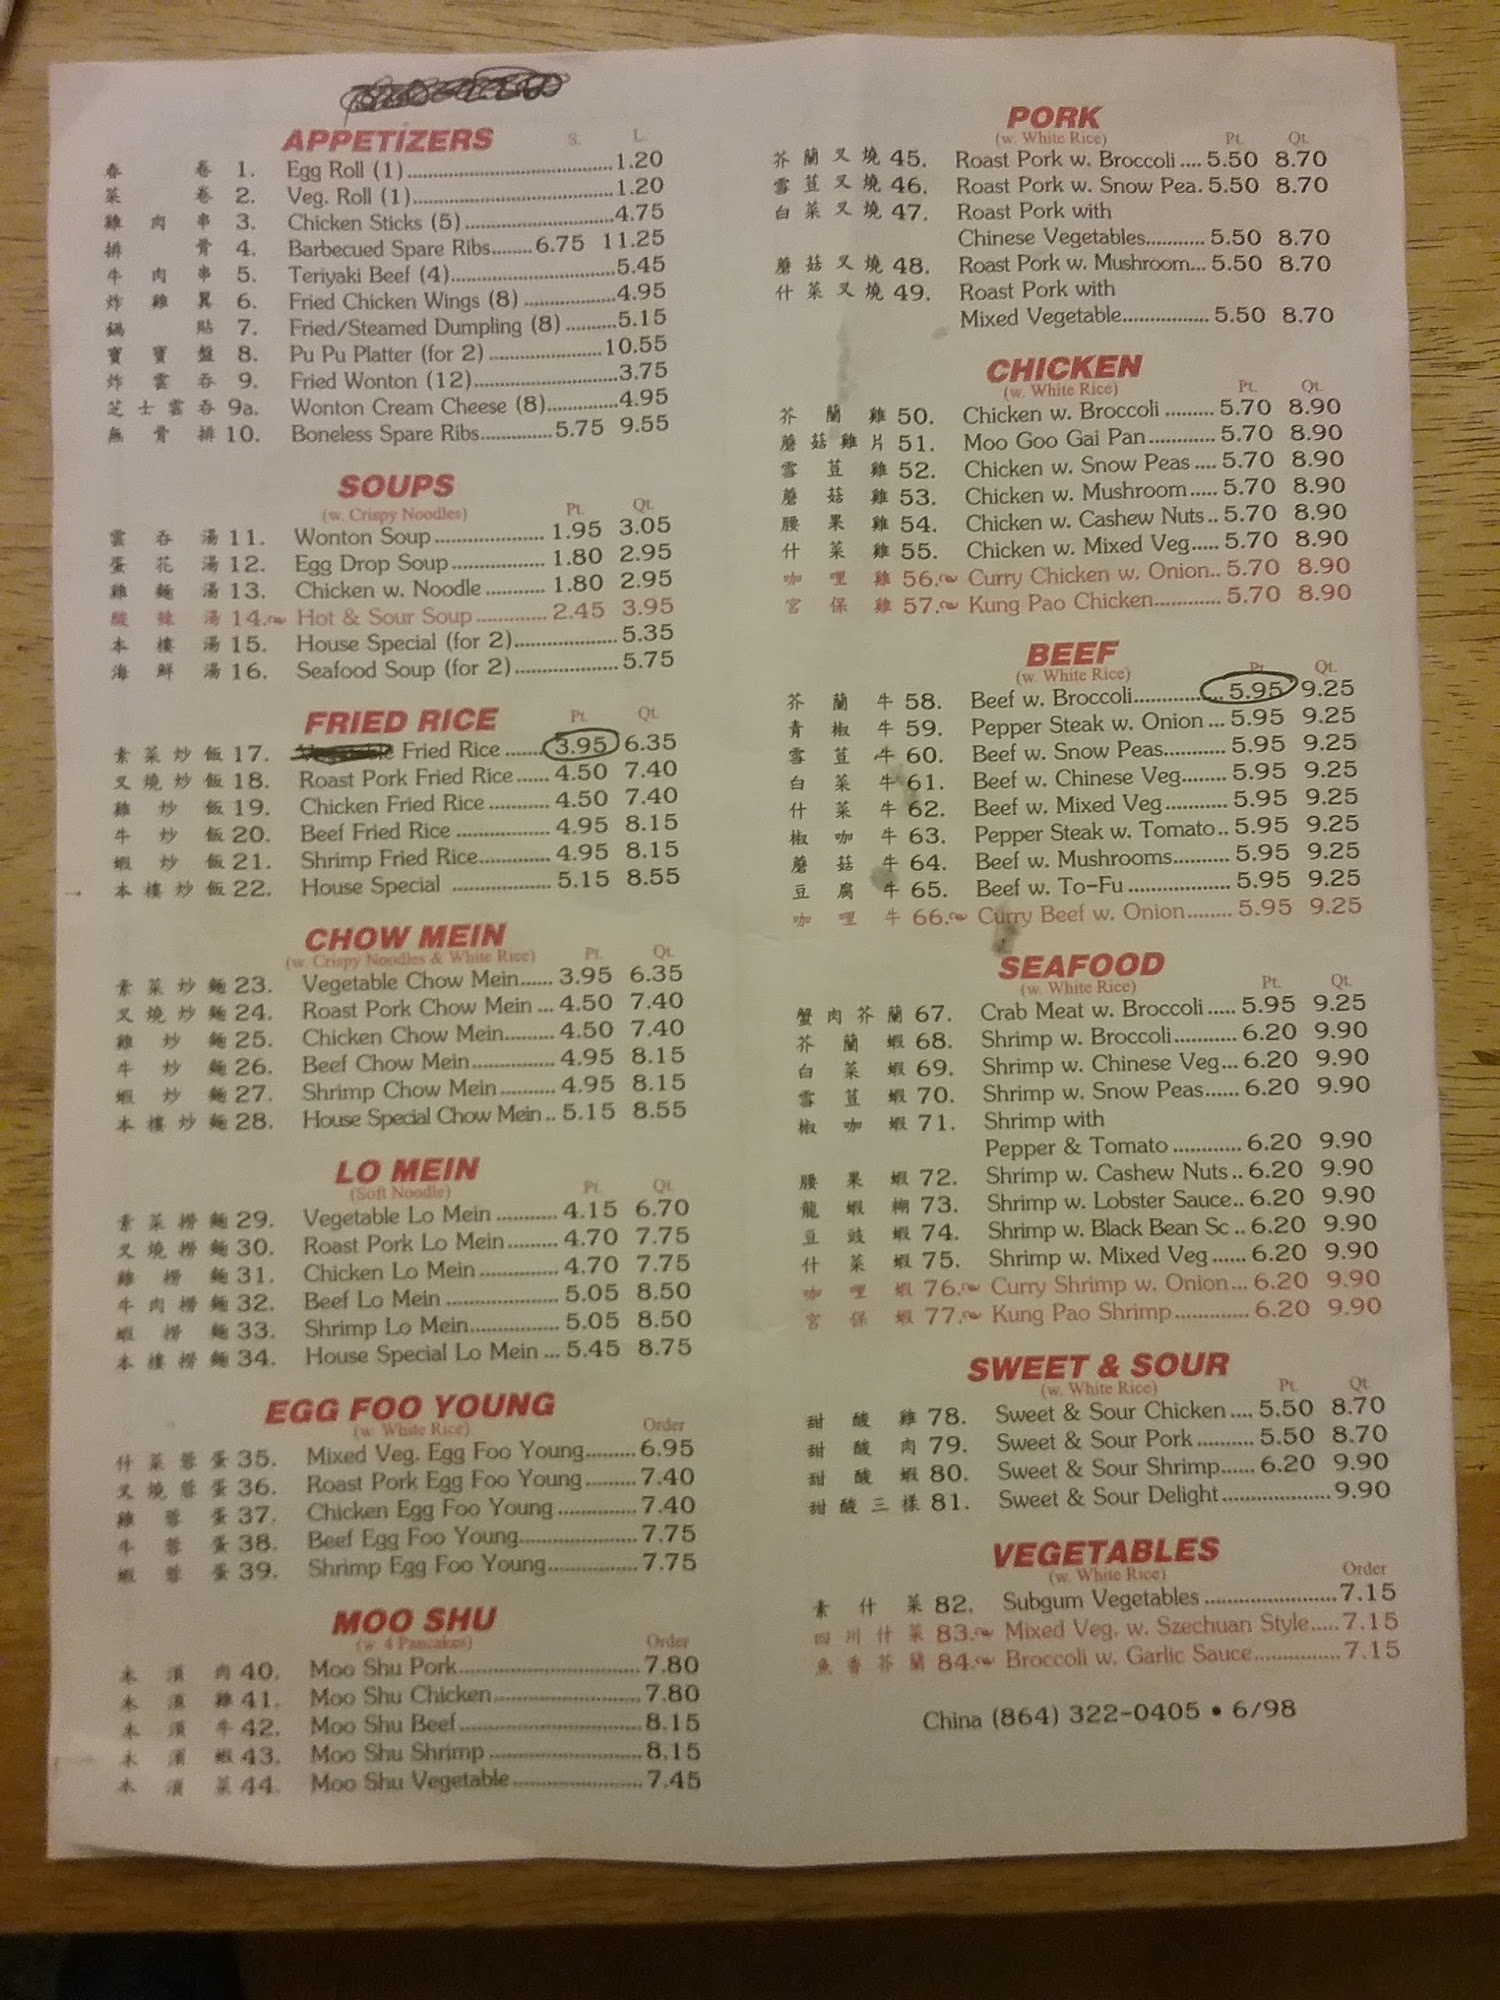 APPETIZERS
S. L.
春卷 1. Egg Roll (1) 1.20
菜卷 2. Veg. Roll (1) 1.20
雞肉串 3. Chicken Sticks (5) 4.75
排骨 4. Barbecued Spare Ribs 6.75 11.25
牛肉串 5. Teriyaki Beef (4) 5.45
炸雞翼 6. Fried Chicken Wings (8) 4.95
鍋貼 7. Fried/Steamed Dumpling (8) 5.15
寶寶盤 8. Pu Pu Platter (for 2) 10.55
炸雲吞 9. Fried Wonton (12) 3.75
芝士雲吞 9a. Wonton Cream Cheese (8) 4.95
無骨排 10. Boneless Spare Ribs 5.75 9.55
SOUPS
(w. Crispy Noodles) Pt. Qt.
雲吞湯 11. Wonton Soup 1.95 3.05
蛋花湯 12. Egg Drop Soup 1.80 2.95
雞麵湯 13. Chicken w. Noodle 1.80 2.95
酸辣湯 14. Hot & Sour Soup 2.45 3.95
本樓湯 15. House Special (for 2) 5.35
海鮮湯 16. Seafood Soup (for 2) 5.75
FRIED RICE
Pt. Qt.
素菜炒飯 17. Fried Rice 3.95 6.35
叉燒炒飯 18. Roast Pork Fried Rice 4.50 7.40
雞炒飯 19. Chicken Fried Rice 4.50 7.40
牛炒飯 20. Beef Fried Rice 4.95 8.15
蝦炒飯 21. Shrimp Fried Rice 4.95 8.15
→ 本樓炒飯 22. House Special 5.15 8.55
CHOW MEIN
(w. Crispy Noodles & White Rice) Pt. Qt.
素菜炒麵 23. Vegetable Chow Mein 3.95 6.35
叉燒炒麵 24. Roast Pork Chow Mein 4.50 7.40
雞炒麵 25. Chicken Chow Mein 4.50 7.40
牛炒麵 26. Beef Chow Mein 4.95 8.15
蝦炒麵 27. Shrimp Chow Mein 4.95 8.15
本樓炒麵 28. House Special Chow Mein 5.15 8.55
LO MEIN
(Soft Noodle) Pt. Qt.
素菜撈麵 29. Vegetable Lo Mein 4.15 6.70
叉燒撈麵 30. Roast Pork Lo Mein 4.70 7.75
雞撈麵 31. Chicken Lo Mein 4.70 7.75
牛肉撈麵 32. Beef Lo Mein 5.05 8.50
蝦撈麵 33. Shrimp Lo Mein 5.05 8.50
本樓撈麵 34. House Special Lo Mein 5.45 8.75
EGG FOO YOUNG
(w. White Rice) Order
什菜蓉蛋 35. Mixed Veg. Egg Foo Young 6.95
叉燒蓉蛋 36. Roast Pork Egg Foo Young 7.40
雞蓉蛋 37. Chicken Egg Foo Young 7.40
牛蓉蛋 38. Beef Egg Foo Young 7.75
蝦蓉蛋 39. Shrimp Egg Foo Young 7.75
MOO SHU
(w. 4 Pancakes) Order
木須肉 40. Moo Shu Pork 7.80
木須雞 41. Moo Shu Chicken 7.80
木須牛 42. Moo Shu Beef 8.15
木須蝦 43. Moo Shu Shrimp 8.15
木須菜 44. Moo Shu Vegetable 7.45
PORK
(w. White Rice) Pt. Qt.
芥蘭叉燒 45. Roast Pork w. Broccoli 5.50 8.70
雪荳叉燒 46. Roast Pork w. Snow Pea. 5.50 8.70
白菜叉燒 47. Roast Pork with
Chinese Vegetables 5.50 8.70
蘑菇叉燒 48. Roast Pork w. Mushroom 5.50 8.70
什菜叉燒 49. Roast Pork with
Mixed Vegetable 5.50 8.70
CHICKEN
(w. White Rice) Pt. Qt.
芥蘭雞 50. Chicken w. Broccoli 5.70 8.90
蘑菇雞片 51. Moo Goo Gai Pan 5.70 8.90
雪荳雞 52. Chicken w. Snow Peas 5.70 8.90
蘑菇雞 53. Chicken w. Mushroom 5.70 8.90
腰果雞 54. Chicken w. Cashew Nuts 5.70 8.90
什菜雞 55. Chicken w. Mixed Veg 5.70 8.90
咖哩雞 56. Curry Chicken w. Onion 5.70 8.90
宮保雞 57. Kung Pao Chicken 5.70 8.90
BEEF
(w. White Rice) Pt. Qt.
芥蘭牛 58. Beef w. Broccoli 5.95 9.25
青椒牛 59. Pepper Steak w. Onion 5.95 9.25
雪荳牛 60. Beef w. Snow Peas 5.95 9.25
白菜牛 61. Beef w. Chinese Veg 5.95 9.25
什菜牛 62. Beef w. Mixed Veg 5.95 9.25
椒咖牛 63. Pepper Steak w. Tomato 5.95 9.25
蘑菇牛 64. Beef w. Mushrooms 5.95 9.25
豆腐牛 65. Beef w. To-Fu 5.95 9.25
咖哩牛 66. Curry Beef w. Onion 5.95 9.25
SEAFOOD
(w. White Rice) Pt. Qt.
蟹肉芥蘭 67. Crab Meat w. Broccoli 5.95 9.25
芥蘭蝦 68. Shrimp w. Broccoli 6.20 9.90
白菜蝦 69. Shrimp w. Chinese Veg 6.20 9.90
雪荳蝦 70. Shrimp w. Snow Peas 6.20 9.90
椒咖蝦 71. Shrimp with
Pepper & Tomato 6.20 9.90
腰果蝦 72. Shrimp w. Cashew Nuts 6.20 9.90
龍蝦糊 73. Shrimp w. Lobster Sauce 6.20 9.90
豆豉蝦 74. Shrimp w. Black Bean Sc 6.20 9.90
什菜蝦 75. Shrimp w. Mixed Veg 6.20 9.90
咖哩蝦 76. Curry Shrimp w. Onion 6.20 9.90
宮保蝦 77. Kung Pao Shrimp 6.20 9.90
SWEET & SOUR
(w. White Rice) Pt. Qt.
甜酸雞 78. Sweet & Sour Chicken 5.50 8.70
甜酸肉 79. Sweet & Sour Pork 5.50 8.70
甜酸蝦 80. Sweet & Sour Shrimp 6.20 9.90
甜酸三樣 81. Sweet & Sour Delight 9.90
VEGETABLES
(w. White Rice) Order
素什菜 82. Subgum Vegetables 7.15
四川什菜 83. Mixed Veg. w. Szechuan Style 7.15
魚香芥蘭 84. Broccoli w. Garlic Sauce 7.15
China (864) 322-0405 • 6/98